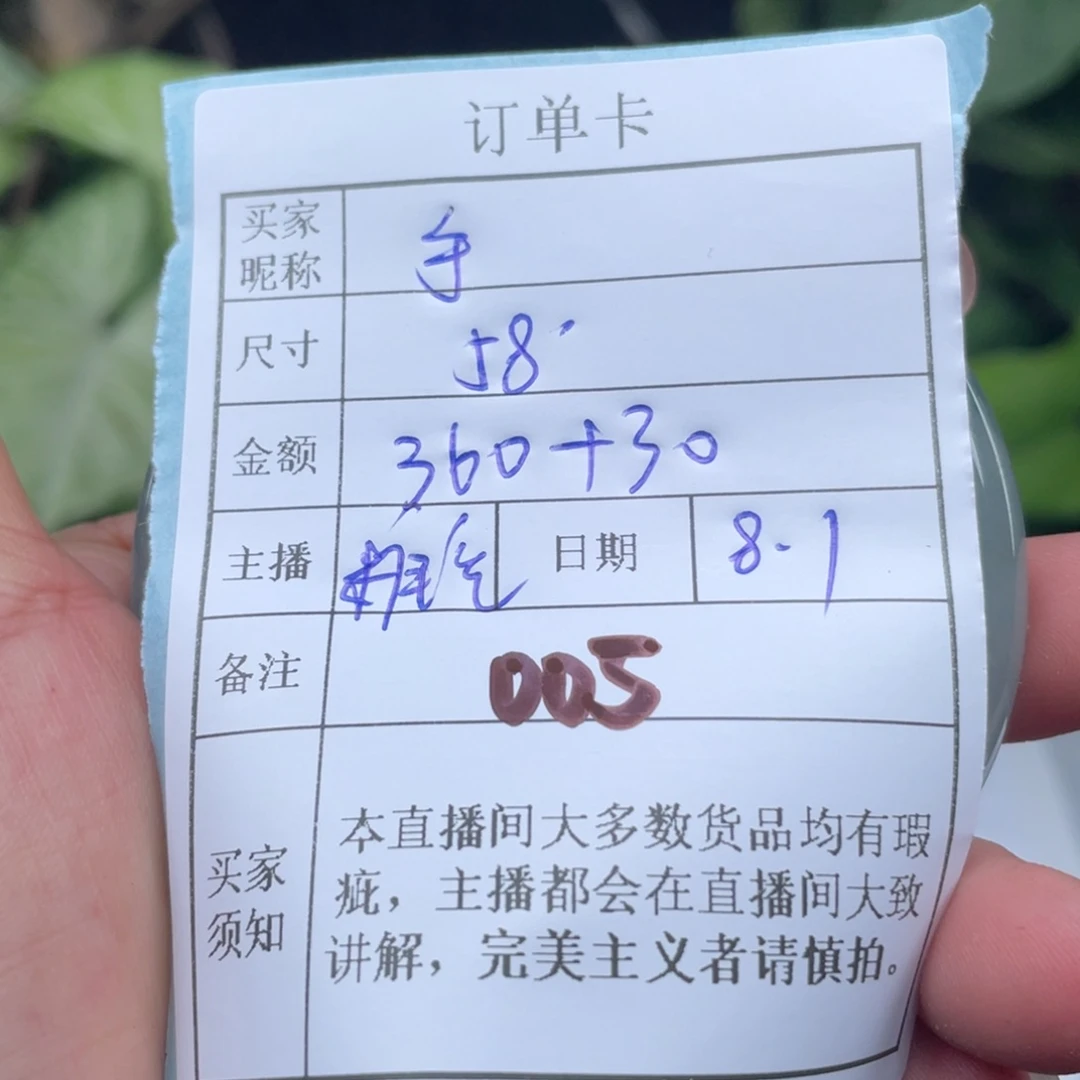 订单卡
买家
昵称
手
尺寸 58
金额 360+30
主播
日期 8.1
备注 005
买家
须知
本直播间大多数货品均有瑕
疵，主播都会在直播间大致
讲解，完美主义者请慎拍。